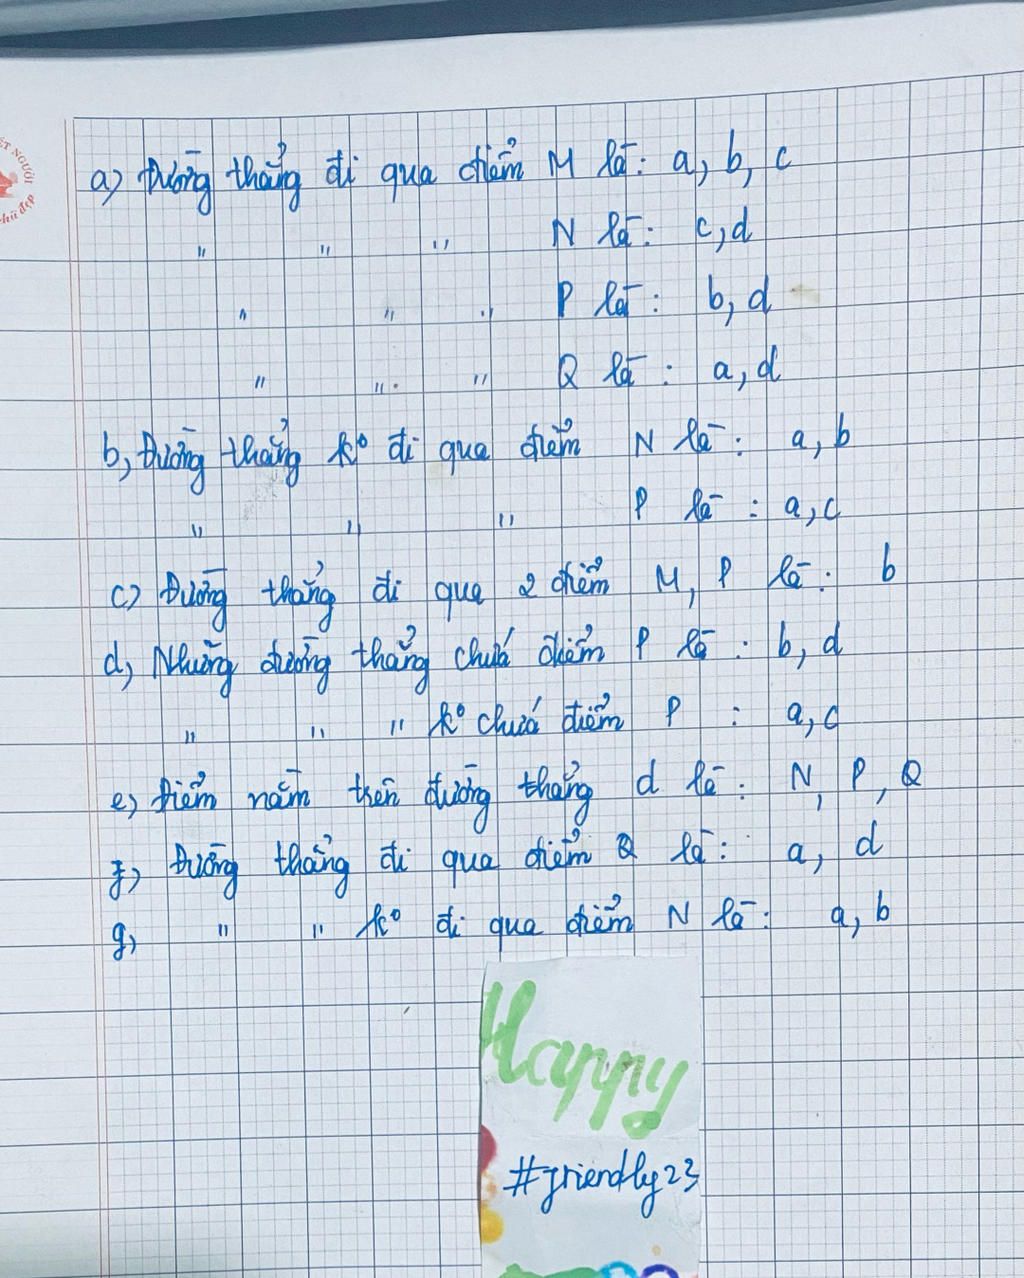 ẾT NGƯỜI
chữ đẹp
a) Đường thẳng đi qua điểm M là: a, b, c
" " " N là: c, d
" " " P là: b, d
" " " Q là: a, d
b, Đường thẳng k° đi qua điểm N là: a, b
" " " P là: a, c
c) Đường thẳng đi qua 2 điểm M, P là: b
d, Những đường thẳng chứa điểm P là: b, d
" " " k° chứa điểm P : a, c
e) Điểm nằm trên đường thẳng d là: N, P, Q
f) Đường thẳng đi qua điểm Q là: a, d
g, " " k° đi qua điểm N là: a, b
Happy
#friendly23